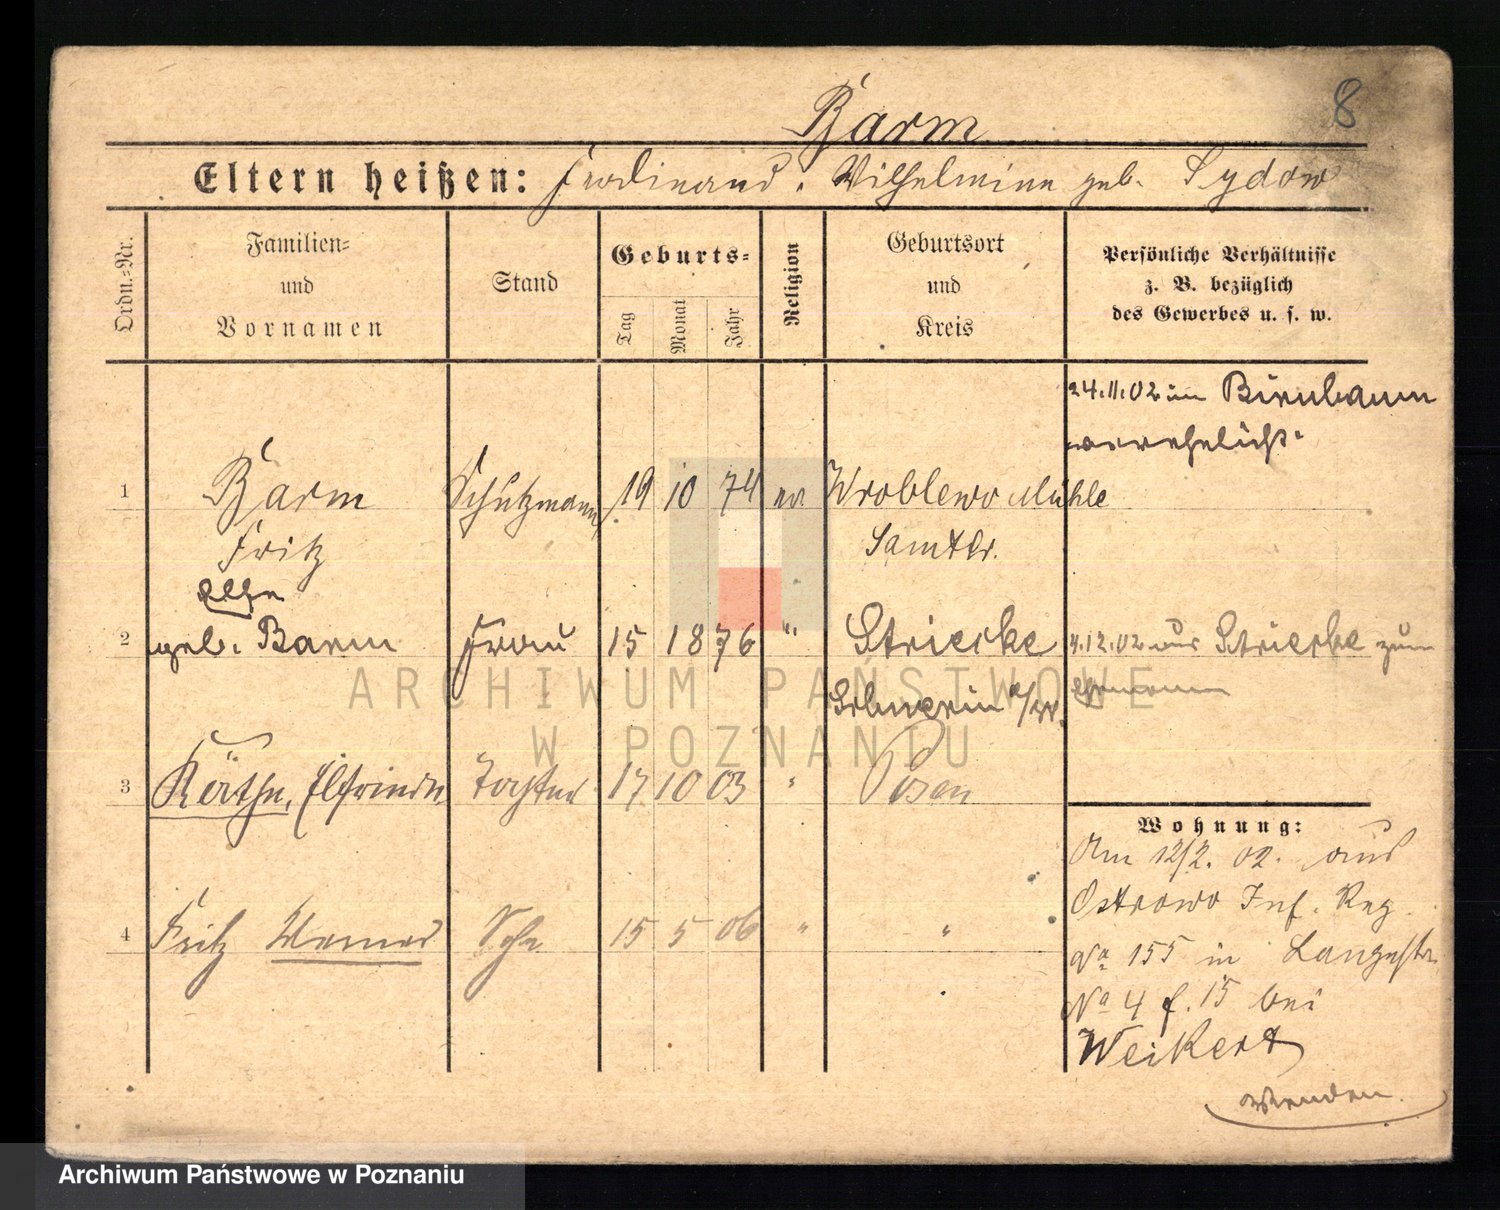 8
Barm
Eltern heißen: Ferdinand, Wilhelmine geb. Sydow
Ordn.=Nr.
Familien=
und
Vornamen
Stand
Geburts=
Tag
Monat
Jahr
Religion
Geburtsort
und
Kreis
Persönliche Verhältnisse
z. B. bezüglich
des Gewerbes u. s. w.
24.11.02 in Birnbaum
verehelicht.
1 Barm Schutzmann 19 10 74 ev Wroblewo Mühle
Fritz Samter.
2 geb. Barm Frau 15 1 76 " Striesche 4.12.02 aus Striesche zum
Schwerin a/W. Ehemann
3 Käthe, Elfriede Tochter 17 10 03 " Posen
Wohnung:
Am 12/2. 02. aus
Ostrowo Inf. Reg.
4 Fritz Werner Sohn 15 5 06 " "
No 155 in Langestr.
No 4 f. 15 bei
Weikert
Wenden.
ARCHIWUM PAŃSTWOWE
W POZNANIU
Archiwum Państwowe w Poznaniu